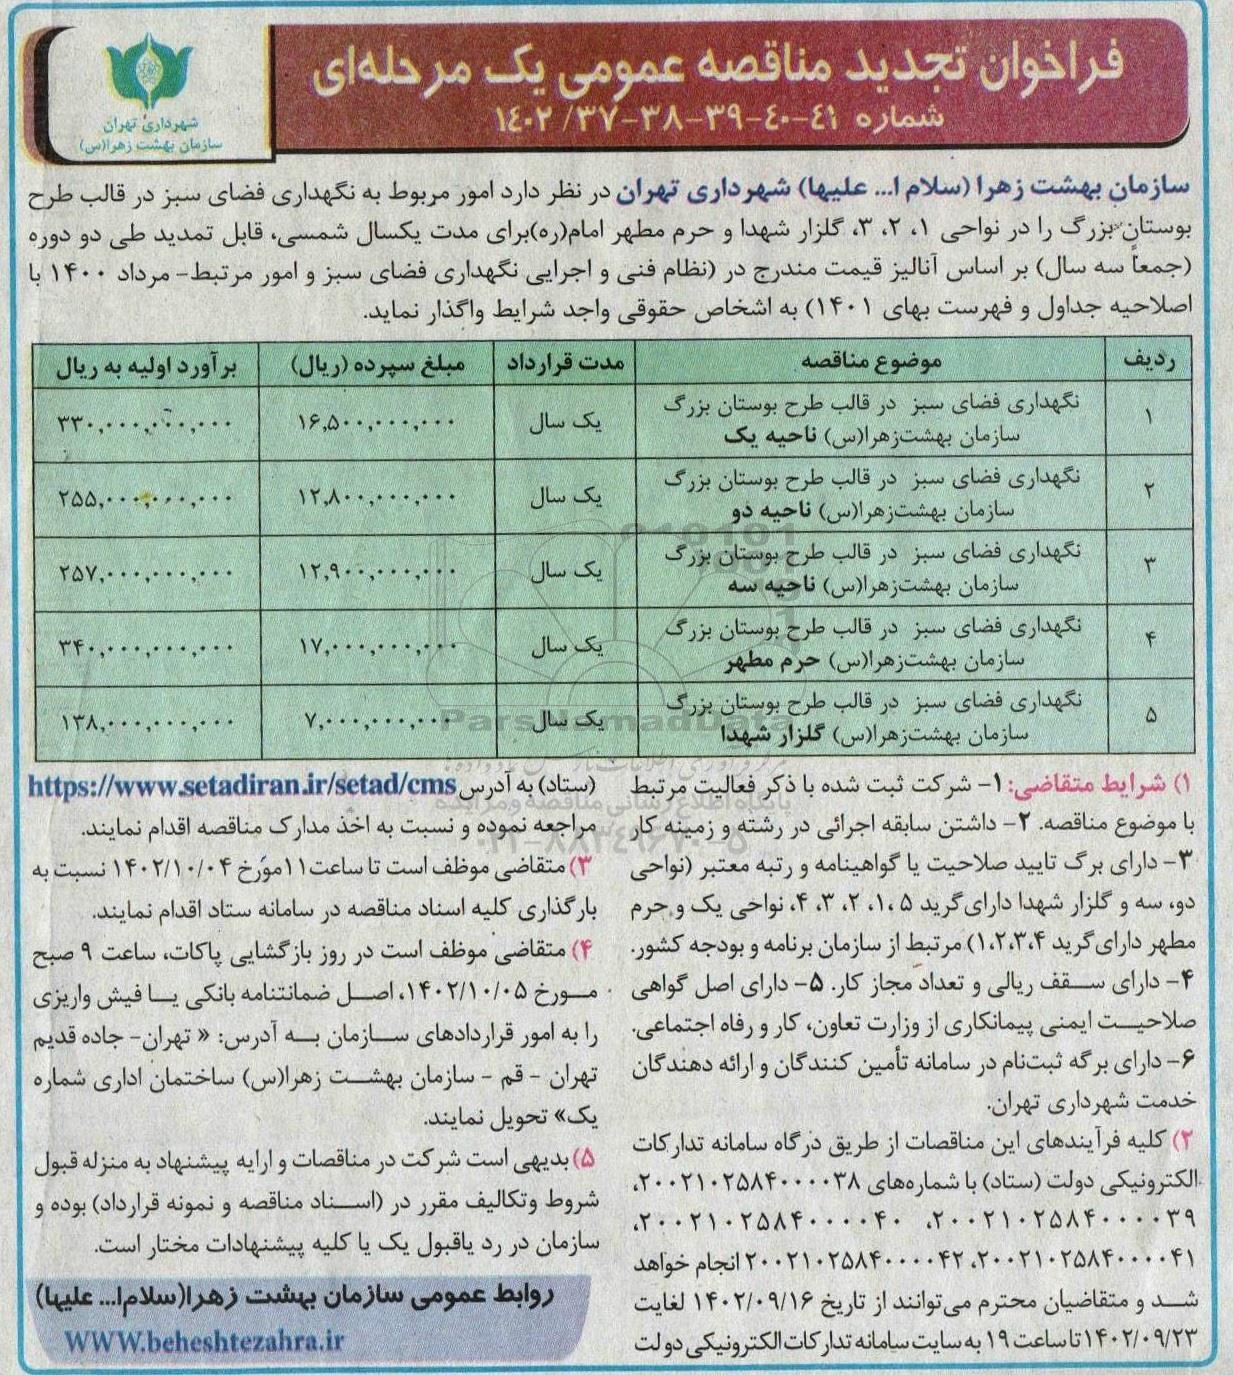 فراخوان تجدید مناقصه عمومی یک مرحله‌ای
شماره ۴۱-۴۰-۳۹-۳۸-۳۷/ ۱۴۰۲
شهرداری تهران
سازمان بهشت زهرا(س)
سازمان بهشت زهرا (سلام ا... علیها) شهرداری تهران در نظر دارد امور مربوط به نگهداری فضای سبز در قالب طرح
بوستان بزرگ را در نواحی ۱، ۲، ۳، گلزار شهدا و حرم مطهر امام(ره)برای مدت یکسال شمسی، قابل تمدید طی دو دوره
(جمعاً سه سال) بر اساس آنالیز قیمت مندرج در (نظام فنی و اجرایی نگهداری فضای سبز و امور مرتبط- مرداد ۱۴۰۰ با
اصلاحیه جداول و فهرست بهای ۱۴۰۱) به اشخاص حقوقی واجد شرایط واگذار نماید.
ردیف موضوع مناقصه مدت قرارداد مبلغ سپرده (ریال) برآورد اولیه به ریال
۱ نگهداری فضای سبز در قالب طرح بوستان بزرگ
سازمان بهشت‌زهرا(س) ناحیه یک یک سال ۱۶,۵۰۰,۰۰۰,۰۰۰ ۳۳۰,۰۰۰,۰۰۰,۰۰۰
۲ نگهداری فضای سبز در قالب طرح بوستان بزرگ
سازمان بهشت‌زهرا(س) ناحیه دو یک سال ۱۲,۸۰۰,۰۰۰,۰۰۰ ۲۵۵,۰۰۰,۰۰۰,۰۰۰
۳ نگهداری فضای سبز در قالب طرح بوستان بزرگ
سازمان بهشت‌زهرا(س) ناحیه سه یک سال ۱۲,۹۰۰,۰۰۰,۰۰۰ ۲۵۷,۰۰۰,۰۰۰,۰۰۰
۴ نگهداری فضای سبز در قالب طرح بوستان بزرگ
سازمان بهشت‌زهرا(س) حرم مطهر یک سال ۱۷,۰۰۰,۰۰۰,۰۰۰ ۳۴۰,۰۰۰,۰۰۰,۰۰۰
۵ نگهداری فضای سبز در قالب طرح بوستان بزرگ
سازمان بهشت‌زهرا(س) گلزار شهدا یک سال ۷,۰۰۰,۰۰۰,۰۰۰ ۱۳۸,۰۰۰,۰۰۰,۰۰۰
ParsNamadData
پایگاه اطلاع رسانی مناقصه و مزایده
۰۲۱-۸۸۳۴۹۶۷۰-۵
۱) شرایط متقاضی: ۱- شرکت ثبت شده با ذکر فعالیت مرتبط
با موضوع مناقصه. ۲- داشتن سابقه اجرائی در رشته و زمینه کار
۳- دارای برگ تایید صلاحیت یا گواهینامه و رتبه معتبر (نواحی
دو، سه و گلزار شهدا دارای‌گرید ۵ ،۱، ۲، ۳، ۴، نواحی یک و حرم
مطهر دارای‌گرید ۱،۲،۳،۴) مرتبط از سازمان برنامه و بودجه کشور.
۴- دارای سقف ریالی و تعداد مجاز کار. ۵- دارای اصل گواهی
صلاحیت ایمنی پیمانکاری از وزارت تعاون، کار و رفاه اجتماعی.
۶- دارای برگه ثبت‌نام در سامانه تأمین کنندگان و ارائه دهندگان
خدمت شهرداری تهران.
۲) کلیه فرآیندهای این مناقصات از طریق درگاه سامانه تدارکات
الکترونیکی دولت (ستاد) با شماره‌های ۲۰۰۲۱۰۲۵۸۴۰۰۰۰۳۸،
۲۰۰۲۱۰۲۵۸۴۰۰۰۰۳۹، ۲۰۰۲۱۰۲۵۸۴۰۰۰۰۴۰،
۲۰۰۲۱۰۲۵۸۴۰۰۰۰۴۱، ۲۰۰۲۱۰۲۵۸۴۰۰۰۰۴۲ انجام خواهد
شد و متقاضیان محترم می‌توانند از تاریخ ۱۴۰۲/۰۹/۱۶ لغایت
۱۴۰۲/۰۹/۲۳ تا ساعت ۱۹ به سایت سامانه تدارکات الکترونیکی دولت
(ستاد) به آدرس https://www.setadiran.ir/setad/cms
مراجعه نموده و نسبت به اخذ مدارک مناقصه اقدام نمایند.
۳) متقاضی موظف است تا ساعت۱۱مورّخ ۱۴۰۲/۱۰/۰۴ نسبت به
بارگذاری کلیه اسناد مناقصه در سامانه ستاد اقدام نمایند.
۴) متقاضی موظف است در روز بازگشایی پاکات، ساعت ۹ صبح
مورخ ۱۴۰۲/۱۰/۰۵، اصل ضمانتنامه بانکی یا فیش واریزی
را به امور قراردادهای سازمان به آدرس: « تهران- جاده قدیم
تهران - قم - سازمان بهشت زهرا(س) ساختمان اداری شماره
یک» تحویل نمایند.
۵) بدیهی است شرکت در مناقصات و ارایه پیشنهاد به منزله قبول
شروط وتکالیف مقرر در (اسناد مناقصه و نمونه قرارداد) بوده و
سازمان در رد یاقبول یک یا کلیه پیشنهادات مختار است.
روابط عمومی سازمان بهشت زهرا(سلام‌ا... علیها)
WWW.beheshtezahra.ir